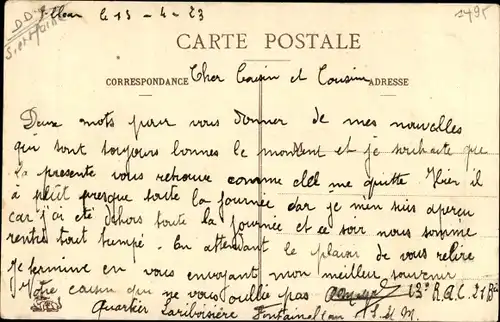 D.D.
S. et Marne
le 13 - 4 - 23
2495
CARTE POSTALE
CORRESPONDANCE
ADRESSE
Cher Cousin et Cousine
Deux mots pour vous donner de mes nouvelles
qui sont toujours bonnes le moment et je souhaite que
la presente vous retrouve comme elle me quitte. Hier il
à plut presque toute la journée car je men suis aperçu
car j'ai été dehors toute la journée et ce soir nous somme
rentré tout trempé. En attendant le plaisir de vous relire
Je termine en vous envoyant mon meilleur souvenir
Votre cousin qui ne vous oublie pas 13e R.A.C. 21 Bie
Quartier Lariboisière Fontainebleau S. M.